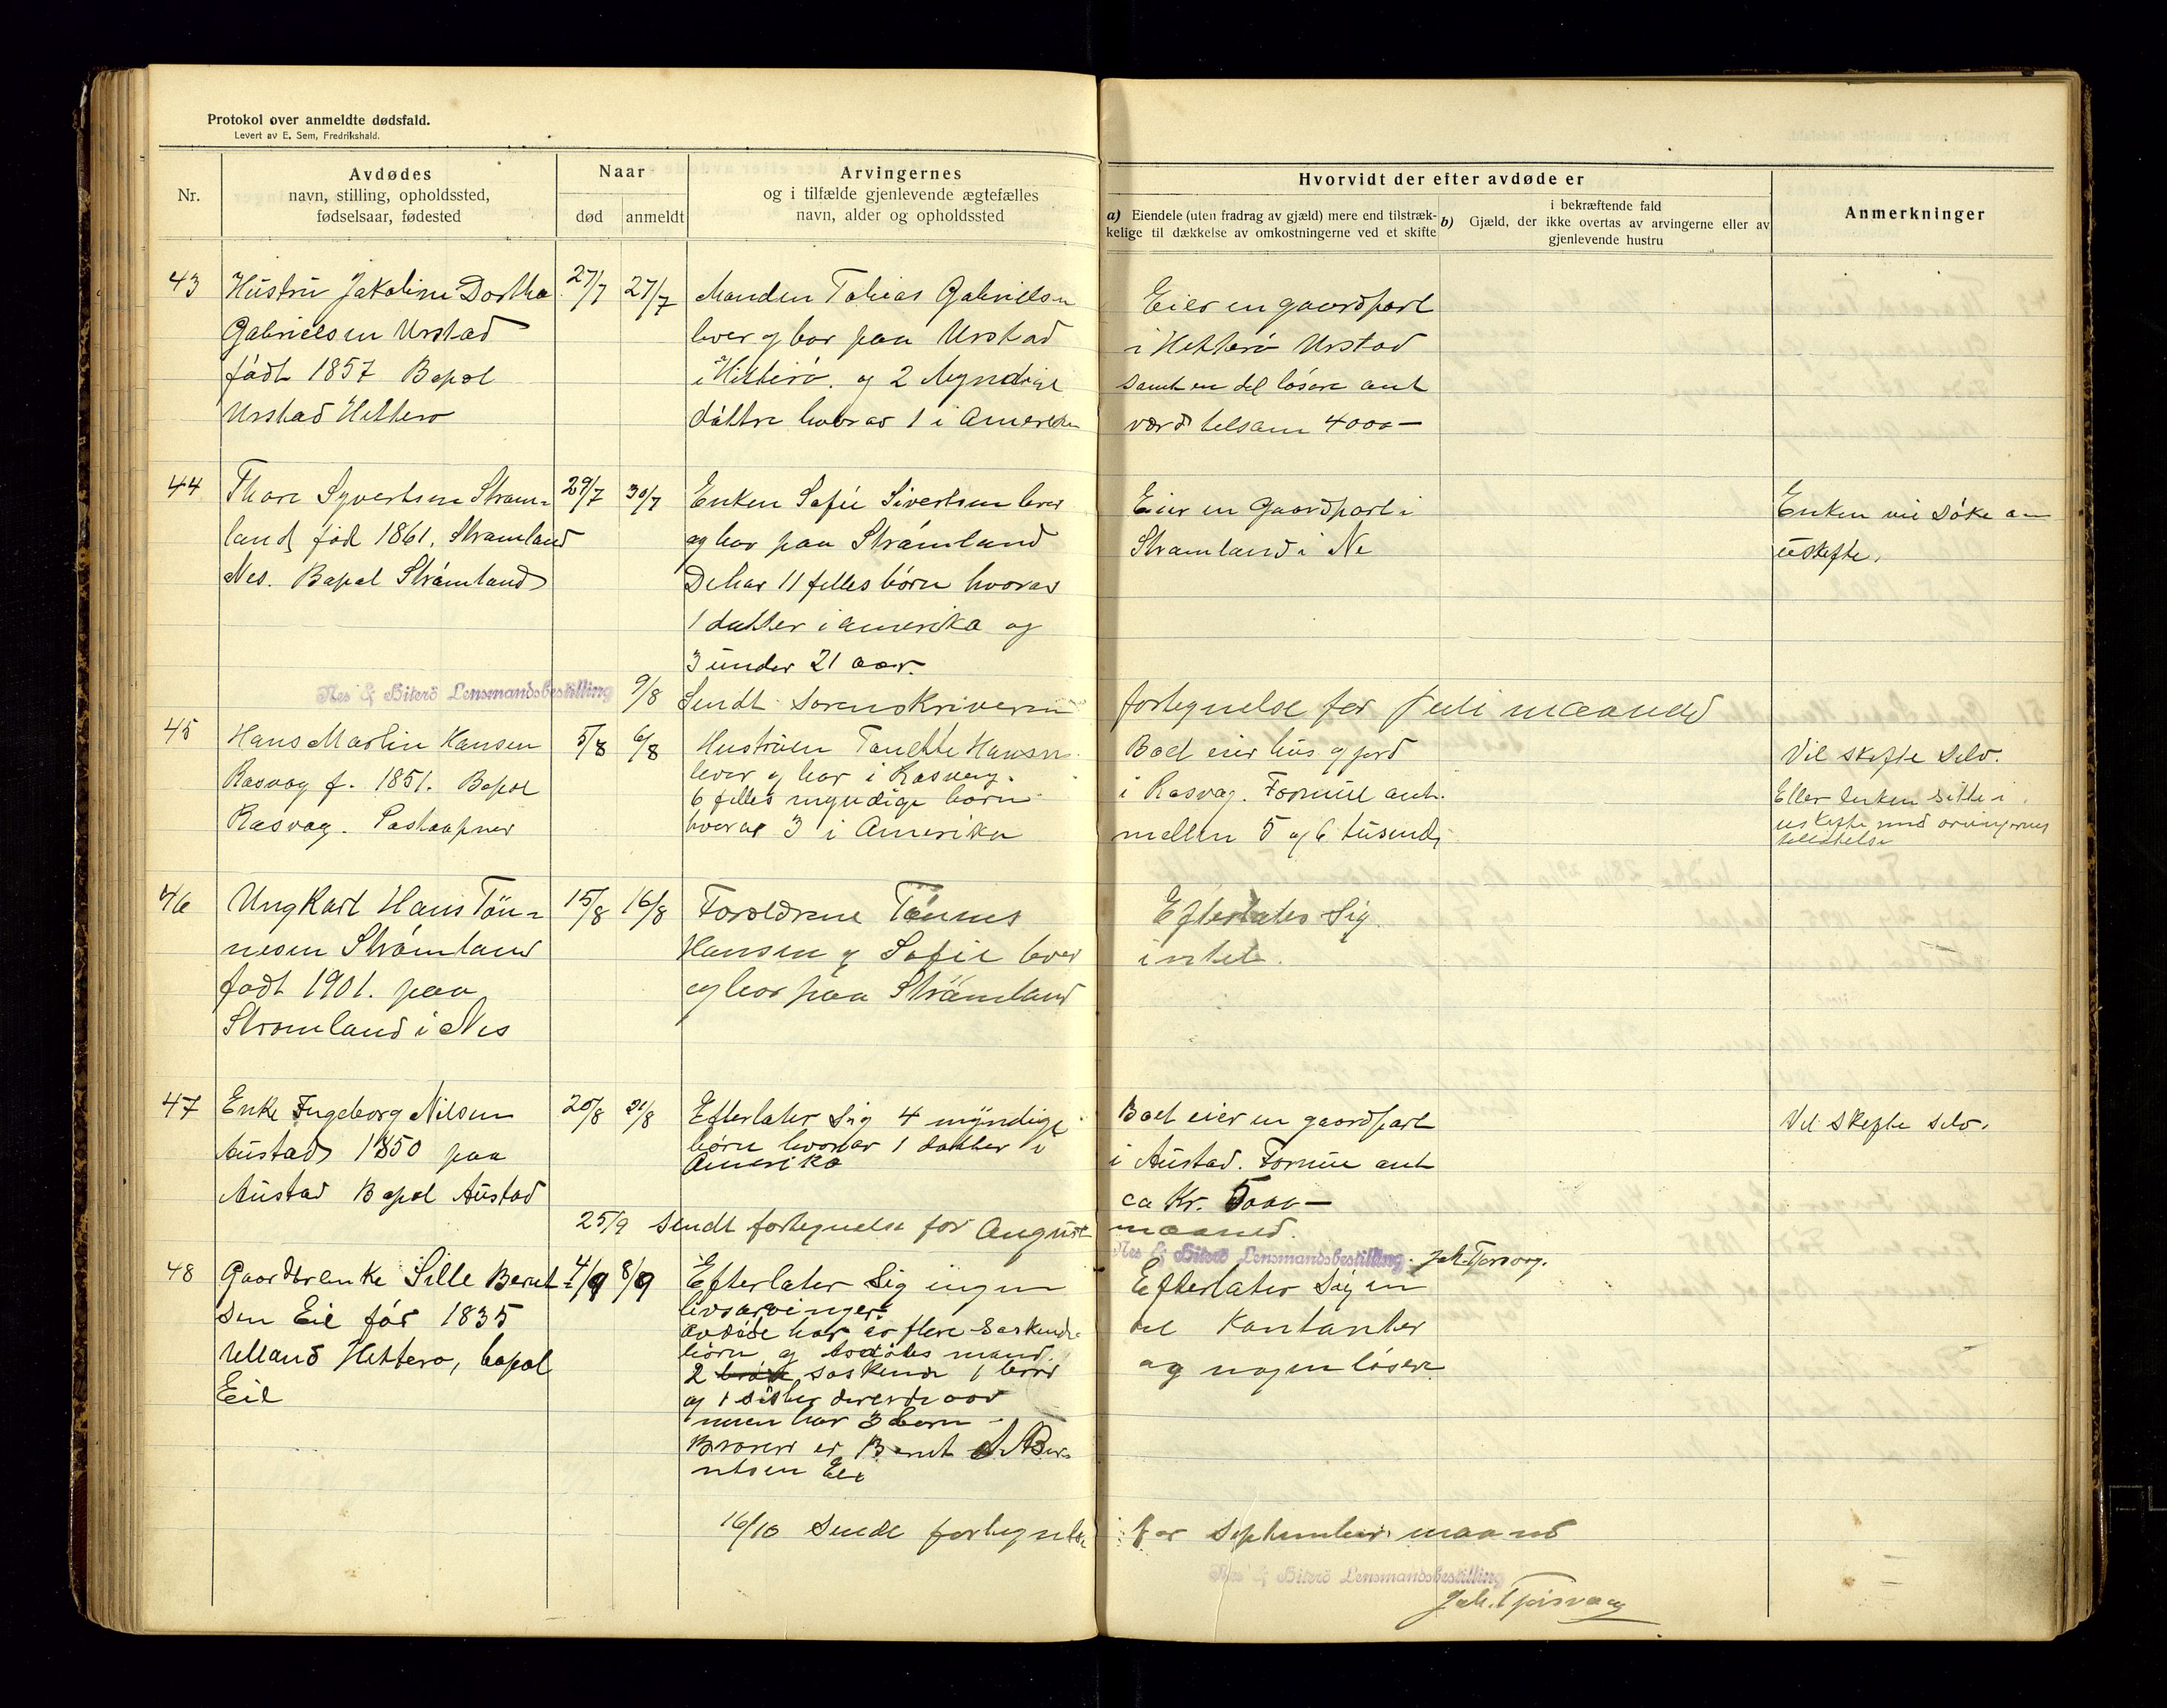 Protokol over anmeldte dødsfald.
Levert av E. Sem, Fredrikshald.
Nr.
Avdødes
navn, stilling, opholdssted,
fødselsaar, fødested
Naar
død
anmeldt
Arvingernes
og i tilfælde gjenlevende ægtefælles
navn, alder og opholdssted
Hvorvidt der efter avdøde er
a) Eiendele (uten fradrag av gjæld) mere end tilstræk-
kelige til dækkelse av omkostningerne ved et skifte
i bekræftende fald
b) Gjæld, der ikke overtas av arvingerne eller av
gjenlevende hustru
Anmerkninger
43
Hustru Jakoline Dorthea
Gabrielsen Urstad
født 1857 Bopæl
Urstad Hittero
27/7
27/7
Manden Tobias Gabrielsen
lever og bor paa Urstad
i Hitterø. og 2 Myndige
døttre hvorav 1 i Amerika
Eier en gaardpart
i Hitterø Urstad
samt en del løsøre ant
værd tilsam 4000 —
44
Thore Syvertsen Strøm=
land, fød 1861. Strømland
Nes. Bopæl Strømland
29/7
30/7
Enken Sofie Sivertsen lever
og bor paa Strømland
De har 11 felles børn hvorav
1 datter i amerika og
3 under 21 aar.
Eier en Gaardpart i
Strømland i Ne
Enken vil søke om
uskifte.
Nes & Hiterö Lensmandsbestilling
9/8 Sendt Sorenskriveren
fortegnelse for Juli maaned
45
Hans Martin Hansen
Rasvåg f. 1851. Bopæl
Rasvåg. Postaapner
5/8
6/8
Hustruen Tonette Hansen
lever og bor i Rasvåg.
6 felles myndige børn
hvorav 3 i Amerika
Boet eier hus og jord
i Rasvåg. Formue ant.
mellem 5 og 6 tusend,
Vil skifte selv.
Eller enken sitte i
uskifte med arvingernes
tilladelse
46
Ungkarl Hans Tön=
nesen Strømland
født 1901. paa
Strømland i Nes
15/8
16/8
Foreldrene Tönnes
Hansen og Sofie lever
og bor paa Strømland
Efterlater sig
intet.
47
Enke Ingeborg Nilsen
Austad 1850 paa
Austad Bopæl Austad
20/8
21/8
Efterlater sig 4 myndige
børn hvorav 1 datter i
Amerika
Boet eier en gaardpart
i Austad. Formue ant
ca Kr. 5000 —
Vil skifte selv.
25/9 Sendt fortegnelse for August
maaned.
Nes & Hiterö Lensmandsbestilling. Joh. Tjersvåg.
48
Gaardbrenke Sille Bernt
sen Eie før 1835
Ulland Hittero, bopæl
Eie
4/9
8/9
Efterlater Sig ingen
livsarvinger.
avdøde har
børn og avdødes mand.
2 søskende 1 bror
og 1 søster
har 3 børn
Broren er Bernt A. Ber-
ntsen Eie
Efterlater sig en
del Kontanter
og nogen løsøre
16/10 Sendt fortegnelse
for September maaned
Nes & Hiterö Lensmandsbestilling
Joh. Tjersvaag